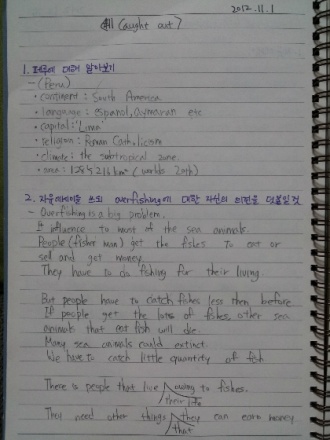 2012.11.1
< Caught out >
1. 페루에 대해 알아보기
- (Peru)
• continent : South America
• language : espanol, Aymaran etc
• capital : 'Lima'
• religion : Roman Catholicism
• climate : the subtropical zone.
• area : 128만 5216 km² (world's 20th)
2. 자유에세이를 쓰되 overfishing에 대한 자신의 의견을 덧붙일 것
- Overfishing is a big problem.
It influence to most of the sea animals.
People (fisher man) get the fishes to eat or
sell and get money.
They have to do fishing for their living.
But people have to catch fishes less then before
If people get the lots of fishes, other sea
animals that eat fish will die.
Many sea animals could extinct.
We have to catch little quantity of fish
There is people that live owing to fishes.
their life
They need other things they can earn money
that